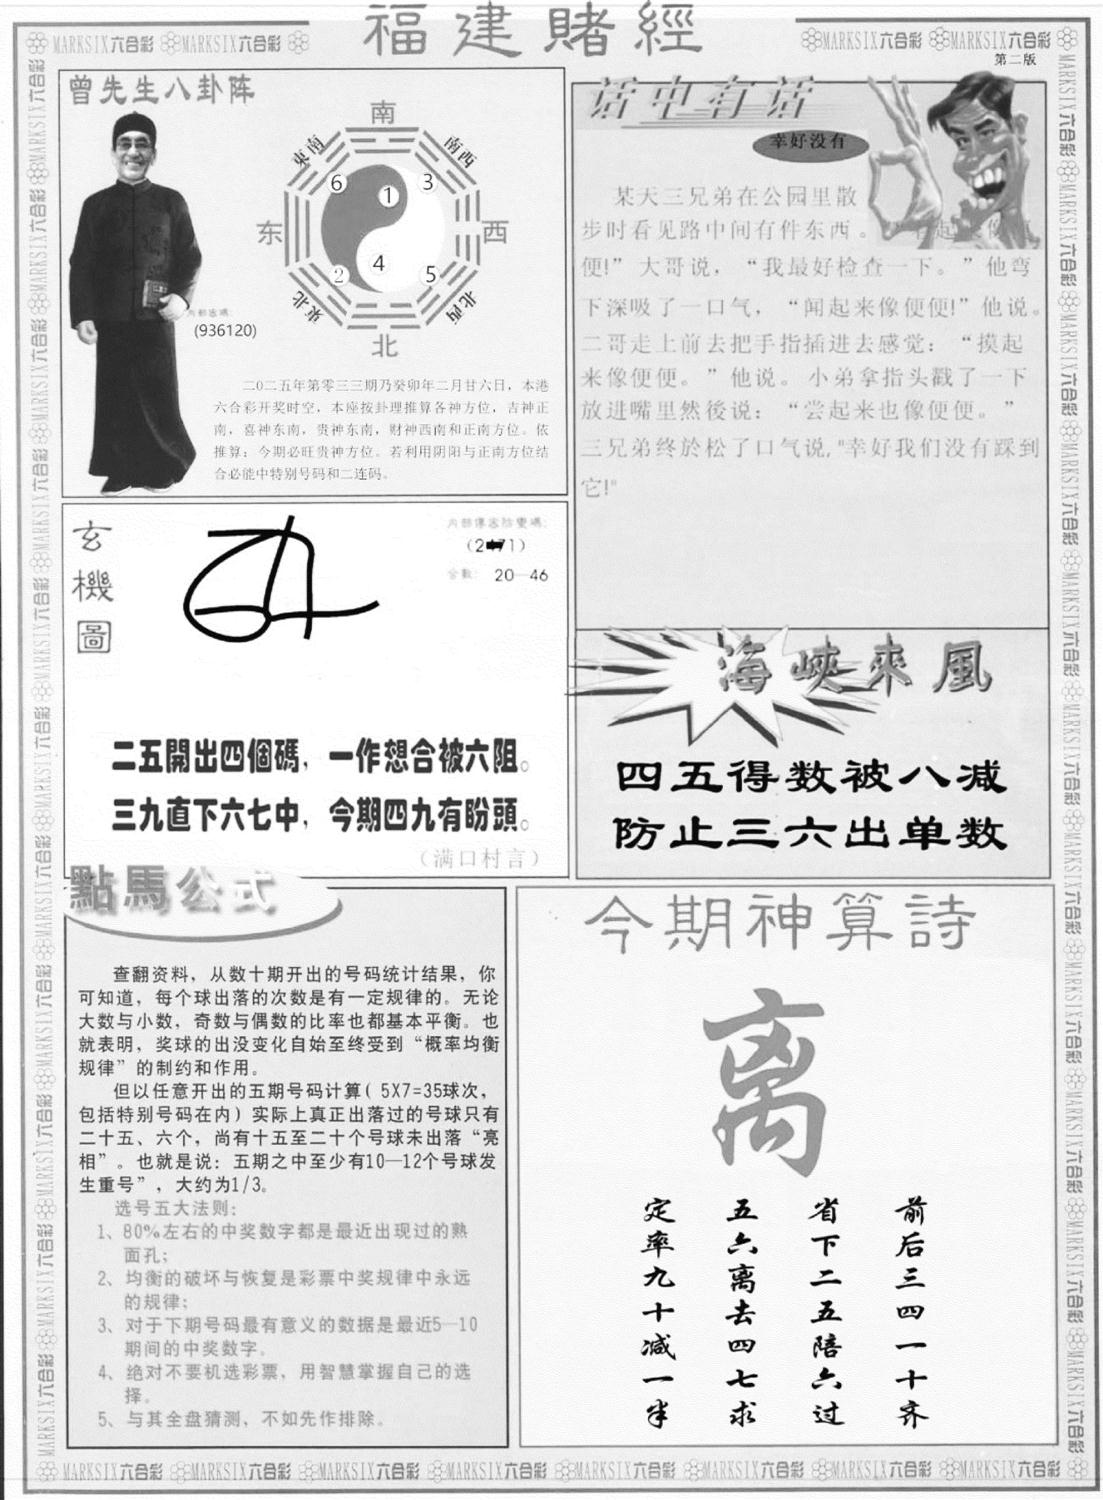 福建賭經
MARKSIX六合彩 MARKSIX六合彩
MARKSIX六合彩 MARKSIX六合彩
第二版
曾先生八卦阵
南
東南
南西
6
1
3
东
西
2
4
5
東北
北西
北
內部密碼:
(936120)
二0二五年第零三三期乃癸卯年二月廿六日，本港
六合彩开奖时空，本座按卦理推算各神方位，吉神正
南，喜神东南，贵神东南，财神西南和正南方位。依
推算：今期必旺贵神方位。若利用阴阳与正南方位结
合必能中特别号码和二连码。
话中有话
幸好没有
某天三兄弟在公园里散
步时看见路中间有件东西。
便!”大哥说，“我最好检查一下。”他弯
下深吸了一口气，“闻起来像便便!”他说。
二哥走上前去把手指插进去感觉：“摸起
来像便便。”他说。小弟拿指头戳了一下
放进嘴里然後说：“尝起来也像便便。”
三兄弟终於松了口气说,"幸好我们没有踩到
它!"
玄機圖
內部傳密防變碼:
(2 71)
合數: 20—46
二五開出四個碼，一作想合被六阻。
三九直下六七中，今期四九有盼頭。
（满口村言）
海峽來風
四五得数被八减
防止三六出单数
點馬公式
查翻资料，从数十期开出的号码统计结果，你
可知道，每个球出落的次数是有一定规律的。无论
大数与小数，奇数与偶数的比率也都基本平衡。也
就表明，奖球的出没变化自始至终受到“概率均衡
规律”的制约和作用。
但以任意开出的五期号码计算( 5X7=35球次，
包括特别号码在内)实际上真正出落过的号球只有
二十五、六个，尚有十五至二十个号球未出落“亮
相”。也就是说：五期之中至少有10—12个号球发
生重号”，大约为1/3。
选号五大法则:
1、80%左右的中奖数字都是最近出现过的熟
面孔；
2、均衡的破坏与恢复是彩票中奖规律中永远
的规律；
3、对于下期号码最有意义的数据是最近5—10
期间的中奖数字。
4、绝对不要机选彩票，用智慧掌握自己的选
择。
5、与其全盘猜测，不如先作排除。
今期神算詩
离
前后三四一十齐
省下二五陪六过
五六离去四七求
定率九十减一半
MARKSIX六合彩 MARKSIX六合彩 MARKSIX六合彩 MARKSIX六合彩 MARKSIX六合彩 MARKSIX六合彩 MARKSIX六合彩 MARKSIX六合彩